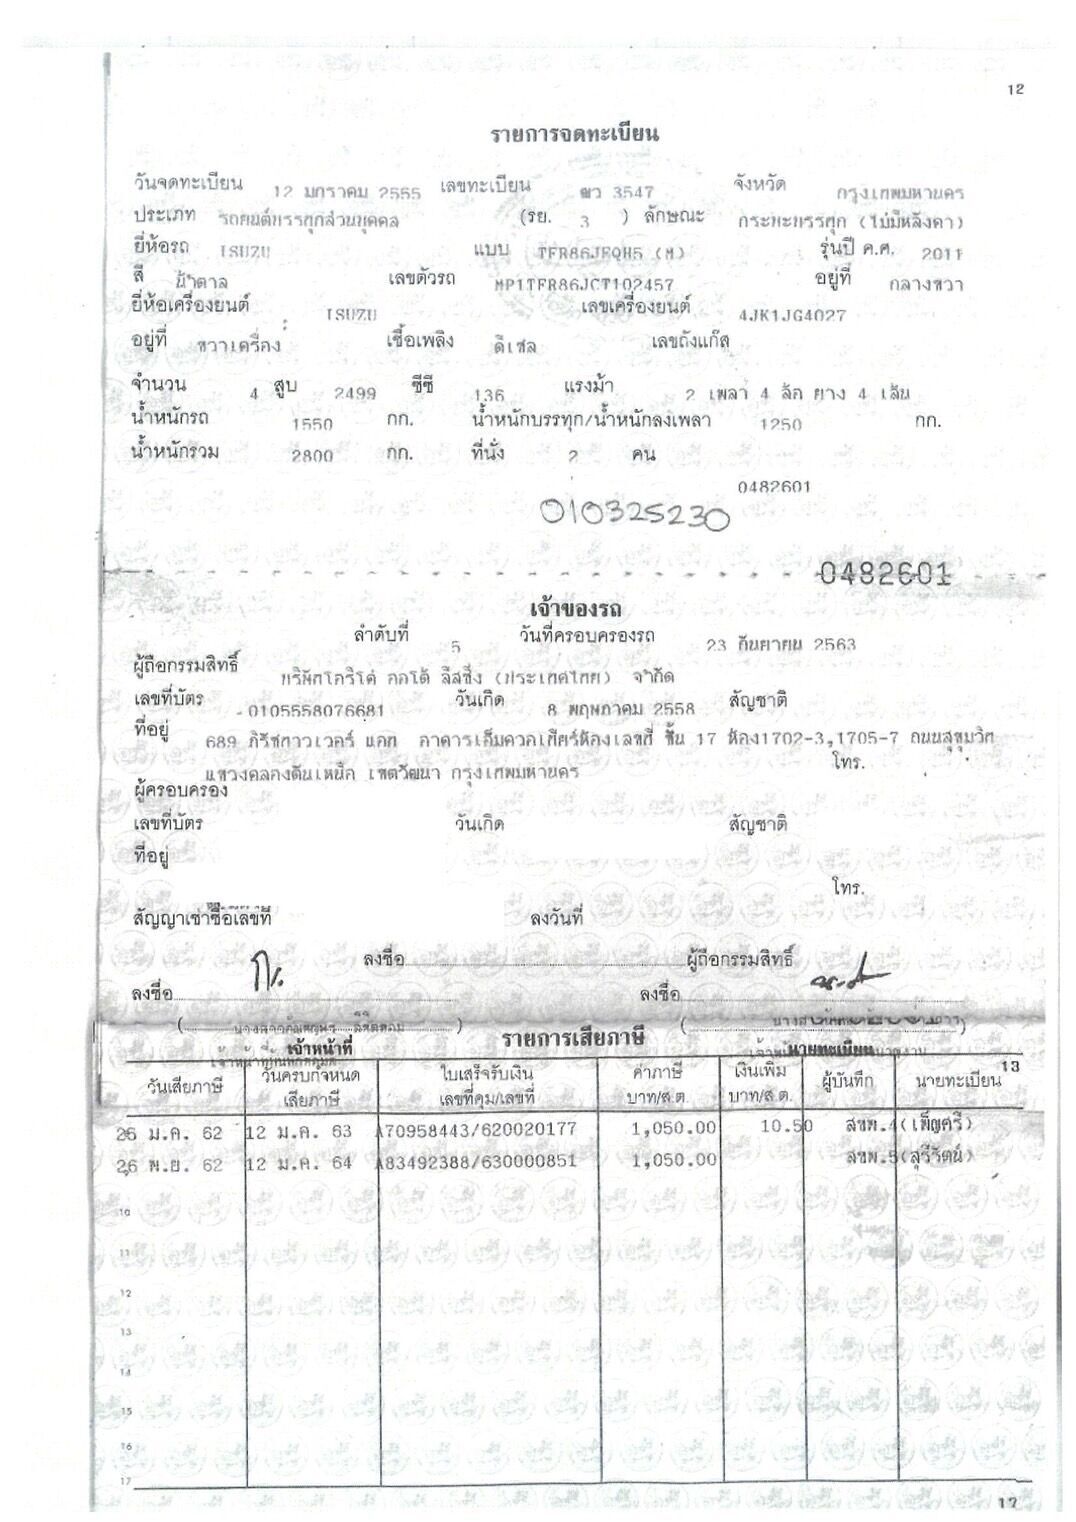 12
รายการจดทะเบียน
วันจดทะเบียน 12 มกราคม 2555 เลขทะเบียน ฒว 3547 จังหวัด กรุงเทพมหานคร
ประเภท รถยนต์บรรทุกส่วนบุคคล (รย. 3 ) ลักษณะ กระบะบรรทุก (ไม่มีหลังคา)
ยี่ห้อรถ ISUZU แบบ TFR86JEQH5 (M) รุ่นปี ค.ศ. 2011
สี น้ำตาล เลขตัวรถ MP1TFR86JCT102457 อยู่ที่ กลางขวา
ยี่ห้อเครื่องยนต์ ISUZU เลขเครื่องยนต์ 4JK1JG4027
อยู่ที่ ขวาเครื่อง เชื้อเพลิง ดีเซล เลขถังแก๊ส
จำนวน 4 สูบ 2499 ซีซี 136 แรงม้า 2 เพลา 4 ล้อ ยาง 4 เส้น
น้ำหนักรถ 1550 กก. น้ำหนักบรรทุก/น้ำหนักลงเพลา 1250 กก.
น้ำหนักรวม 2800 กก. ที่นั่ง 2 คน
0482601
010325230
0482601
เจ้าของรถ
ลำดับที่ 5 วันที่ครอบครองรถ 23 กันยายน 2563
ผู้ถือกรรมสิทธิ์ บริษัทโคริโค่ ออโต้ ลีสซิ่ง (ประเทศไทย) จำกัด
เลขที่บัตร 0105558076681 วันเกิด 8 พฤษภาคม 2558 สัญชาติ
ที่อยู่ 689 ภิรัชทาวเวอร์ แอท อาคารเอ็มควอเทียร์ห้องเลขที่ ชั้น 17 ห้อง1702-3,1705-7 ถนนสุขุมวิท
แขวงคลองตันเหนือ เขตวัฒนา กรุงเทพมหานคร โทร.
ผู้ครอบครอง
เลขที่บัตร วันเกิด สัญชาติ
ที่อยู่
โทร.
สัญญาเช่าซื้อเลขที่ ลงวันที่
ลงชื่อ ผู้ถือกรรมสิทธิ์
ลงชื่อ ลงชื่อ
เจ้าหน้าที่ รายการเสียภาษี นายทะเบียน
13
วันเสียภาษี วันครบกำหนดเสียภาษี ใบเสร็จรับเงิน เลขที่คุม/เลขที่ ค่าภาษี บาท/ส.ต. เงินเพิ่ม บาท/ส.ต. ผู้บันทึก นายทะเบียน
25 ม.ค. 62 12 ม.ค. 63 A70958443/620020177 1,050.00 10.50 สขพ.4(เพ็ญศรี)
26 พ.ย. 62 12 ม.ค. 64 A83492388/630000851 1,050.00 สขพ.5(สุรีรัตน์)
10
11
12
13
14
15
16
17